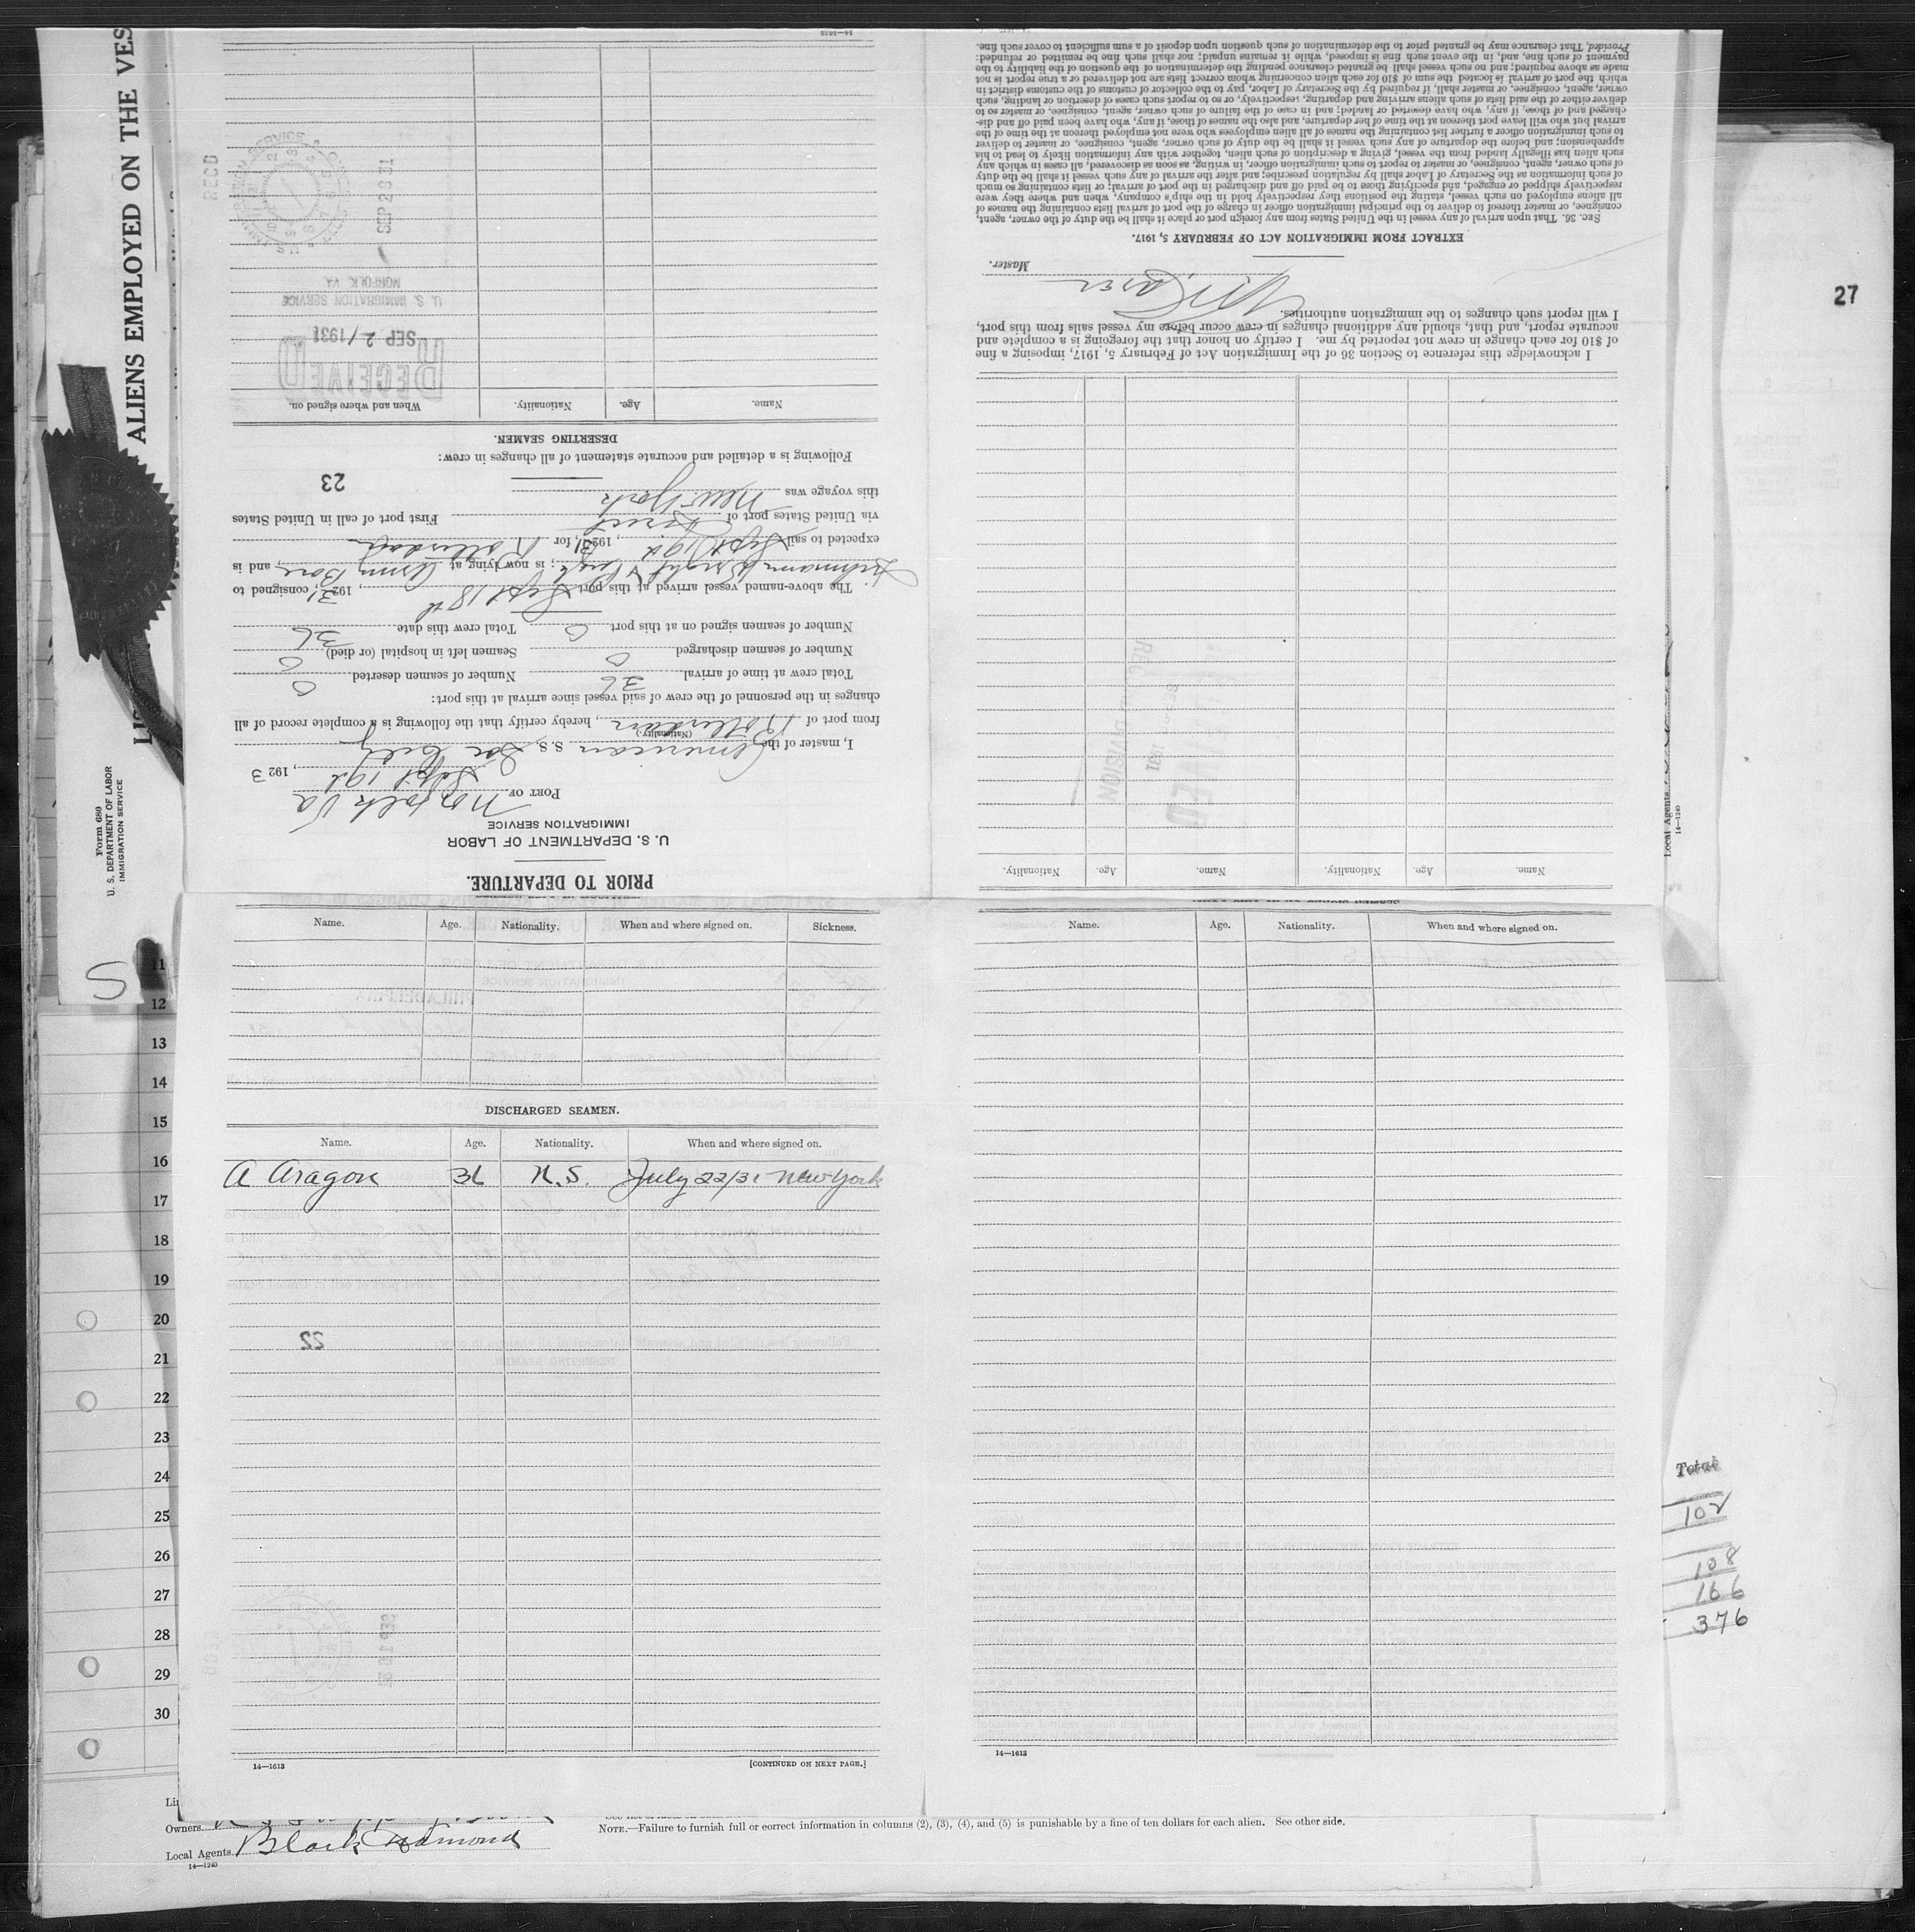 ALIENS EMPLOYED ON THE VES
Form 680
U. S. DEPARTMENT OF LABOR
IMMIGRATION SERVICE
S
27
PRIOR TO DEPARTURE.
U. S. DEPARTMENT OF LABOR
IMMIGRATION SERVICE
PORT OF Norfolk Va
Sept 19th, 1923
I, master of the American S. S.
(Nationality.)
from port of Rotterdam, hereby certify that the following is a complete record of all
changes in the personnel of the crew of said vessel since arrival at this port:
Total crew at time of arrival 36 Number of seamen deserted 0
Number of seamen discharged 0 Seamen left in hospital (or died) 0
Number of seamen signed on at this port 0 Total crew this date 36
The above-named vessel arrived at this port Sept 18th, 192 31, consigned to
; is now lying at Army Base, and is
expected to sail Sept 19th, 192 31, for Rotterdam
via United States port of Direct First port of call in United States
this voyage was New York
23
Following is a detailed and accurate statement of all changes in crew:
DESERTING SEAMEN.
Name. Age. Nationality. When and where signed on.
RECEIVED
SEP 21 1931
U. S. IMMIGRATION SERVICE
NORFOLK, VA.
SEP 23 31
REC'D
14—1613
Name. Age. Nationality. Name. Age. Nationality.
I acknowledge this reference to Section 36 of the Immigration Act of February 5, 1917, imposing a fine
of $10 for each change in crew not reported by me. I certify on honor that the foregoing is a complete and
accurate report, and that, should any additional changes in crew occur before my vessel sails from this port,
I will report such changes to the immigration authorities.
Master.
EXTRACT FROM IMMIGRATION ACT OF FEBRUARY 5, 1917.
SEC. 36. That upon arrival of any vessel in the United States from any foreign port or place it shall be the duty of the owner, agent,
consignee, or master thereof to deliver to the principal immigration officer in charge of the port of arrival lists containing the names of
all aliens employed on such vessel, stating the positions they respectively hold in the ship's company, when and where they were
respectively shipped or engaged, and specifying those to be paid off and discharged in the port of arrival; or lists containing so much
of such information as the Secretary of Labor shall by regulation prescribe; and after the arrival of any such vessel it shall be the duty
of such owner, agent, consignee, or master to report to such immigration officer, in writing, as soon as discovered, all cases in which any
such alien has illegally landed from the vessel, giving a description of such alien, together with any information likely to lead to his
apprehension; and before the departure of any such vessel it shall be the duty of such owner, agent, consignee, or master to deliver
to such immigration officer a further list containing the names of all alien employees who were not employed thereon at the time of the
arrival but who will leave port thereon at the time of her departure, and also the names of those, if any, who have been paid off and dis-
charged and of those, if any, who have deserted or landed; and in case of the failure of such owner, agent, consignee, or master so to
deliver either of the said lists of such aliens arriving and departing, respectively, or so to report such cases of desertion or landing, such
owner, agent, consignee, or master shall, if required by the Secretary of Labor, pay to the collector of customs of the customs district in
which the port of arrival is located the sum of $10 for each alien concerning whom correct lists are not delivered or a true report is not
made as above required; and no such vessel shall be granted clearance pending the determination of the question of the liability to the
payment of such fine, and, in the event such fine is imposed, while it remains unpaid; nor shall such fine be remitted or refunded:
Provided, That clearance may be granted prior to the determination of such question upon deposit of a sum sufficient to cover such fine.
Local Agents
14—1240
Name. Age. Nationality. When and where signed on. Sickness.
DISCHARGED SEAMEN.
Name. Age. Nationality. When and where signed on.
A Aragon 36 N.S. July 22/31 New York
22
14—1613 [CONTINUED ON NEXT PAGE.]
Name. Age. Nationality. When and where signed on.
14—1613
11
12
13
14
15
16
17
18
19
20
21
22
23
24
25
26
27
28
29
30
Total
102
108
166
376
Owners
Local Agents Black Diamond
14—1240
NOTE.—Failure to furnish full or correct information in columns (2), (3), (4), and (5) is punishable by a fine of ten dollars for each alien. See other side.